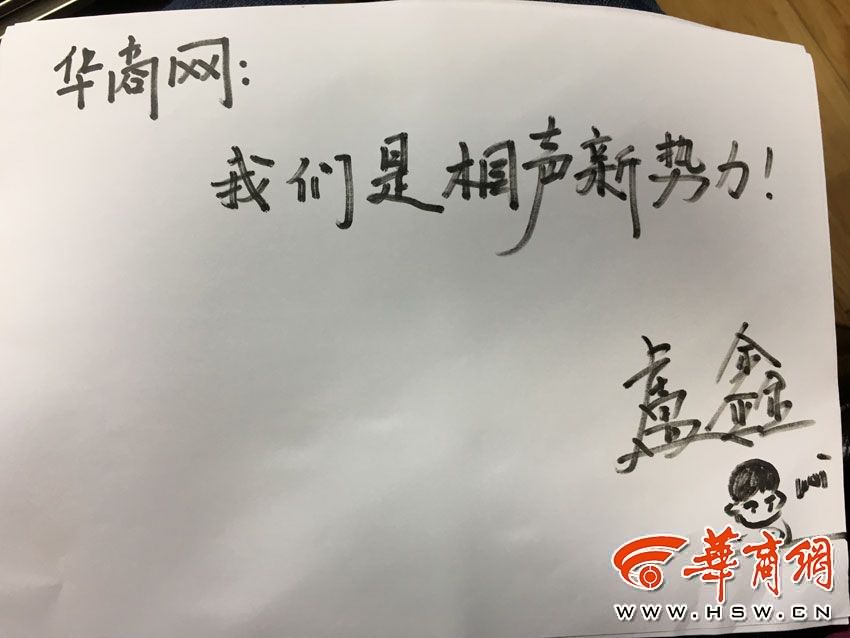 华商网:
我们是相声新势力!
盧鑫
華商網
WWW.HSW.CN